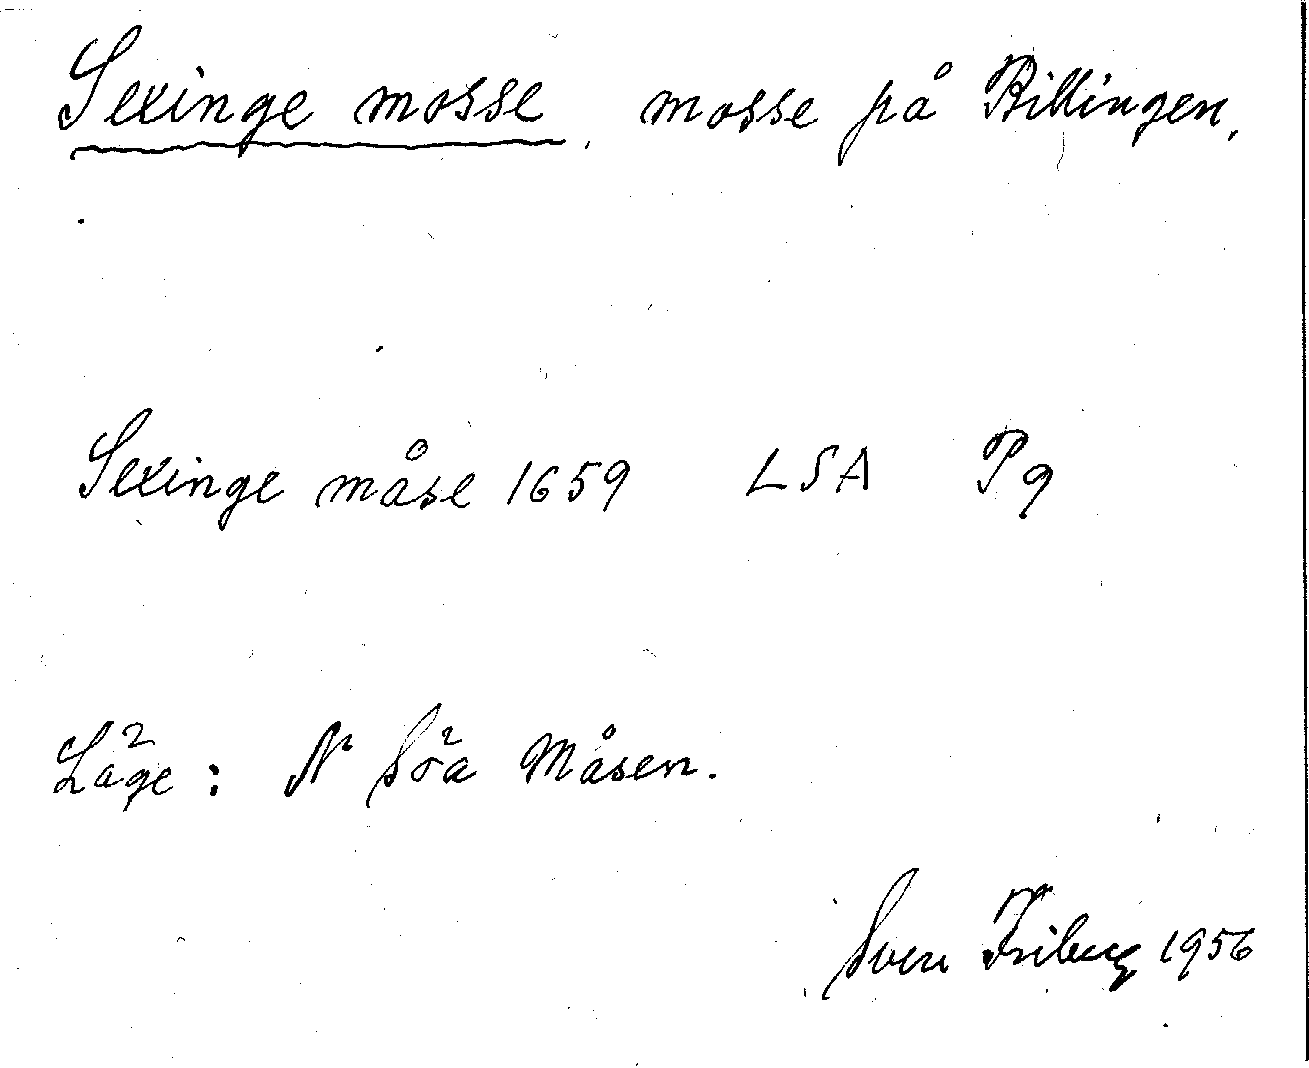 Sexinge mosse, mosse på Billingen,
Sexinge måse 1659 LSA P9
Läge: N Söa Måsen.
Sven Friberg 1956